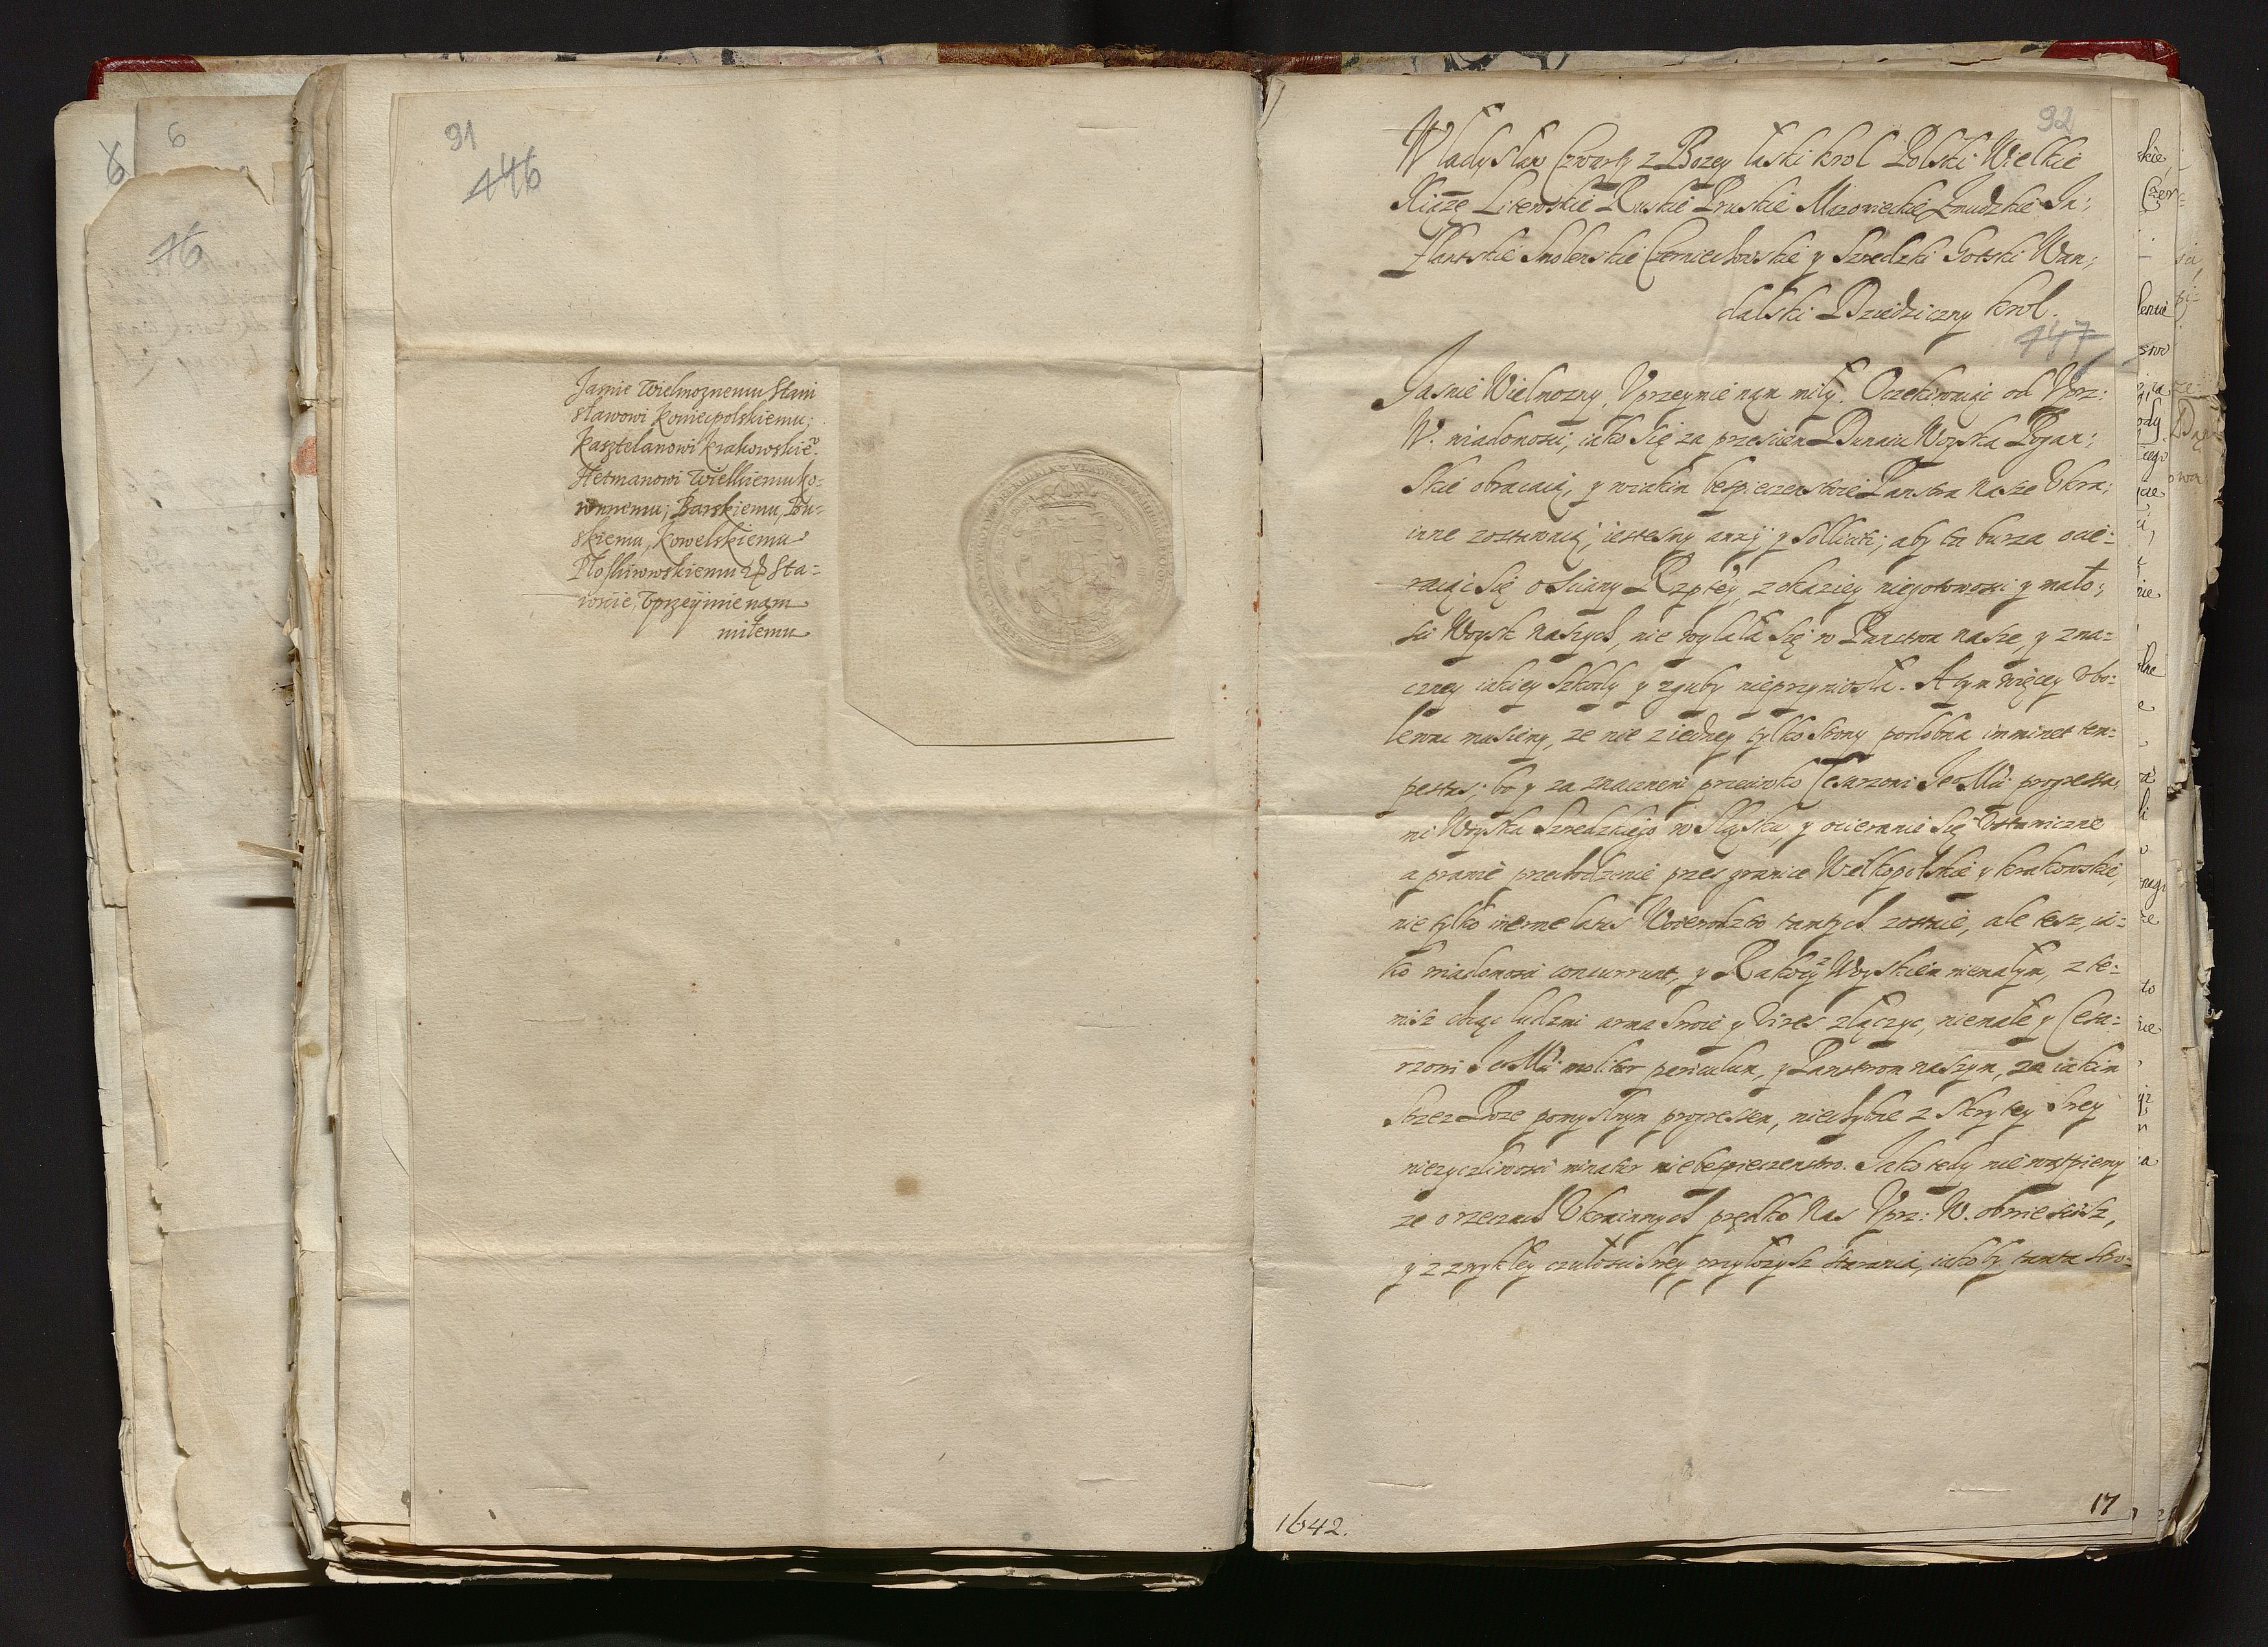 91
446
Jaśnie Wielmoznemu Stani
sławowi Koniecpolskiemu;
Kasztelanowi Krakowskie͂.
Hetmanowi Wielkiemu Ko=
ronnemu; Barskiemu, Bu=
skiemu, Kowelskiemu
Płoskirowskiemu Sta=
roście, Vprzeÿmie nam
miłemu
92
Władysław Czwarty z Bozey łaski Krol Polski Wielkie
Xiążę Litewskie Ruskie Pruskie Mazowieckie Zmudzkie In:
flantskie Smolenskie Czerniechowskie y Szwedzki Gotski Wan:
dalski Dziedziczny Krol.
447
Jasnie Wielmozny, Vprzeymie nam miły. Oczekiwaiąc od Vprz:
W. wiadomosci, iako się za przesciem Dunaiu Woyska Pogan:
skie obracaią, y w iakim bespieczenstwie Panstwa Nasze Vkra:
inne zostawaią, iestesmy anxij y solliciti, aby ta burza ocie:
raiąc się o sciany Rzptey, z okaziey niegotowosci y mało:
sci Woysk Naszych, nie wylała się w Panstwa nasze, y zna=
czney iakiey szkody y zguby nieprzyniosła. A tym więcey vbo:
lewac musiemy, ze nie z iedney tylko strony podobna imminet tem=
pestas: bo y za znacznemi przeciwko Cesarzowi Je Mci progressa:
mi Woyska Szwedzkiego w Sląsku, y ocieranie się vstawiczne
a prawie przechodzenie przes granice Wielkopolskie y Krakowskie,
nie tylko inerme latus Woiewodztw tamtych zostaie, ale tesz, ia=
ko wiadomosci concurrunt, y Rakocy Woyskiem niemałym, z te=
misz chcąc ludzmi arma swoie y vires złączyc, niemałe y Cesa=
rzowi Je Mci molitur periculum, y Panstwom naszym, za iakim
strzez Boze pomyslnym progressem, niechybne z skrytey swey
niezyczliwosci minatur niebespieczenstwo. Jako tedy nie wątpiemy
ze o rzeczach Vkrainnych prędko Nas Vprz: W. obwiescisz,
y z zwykłey czułosci swey przyłozysz starania, iakoby tamta stro=
1642.
17